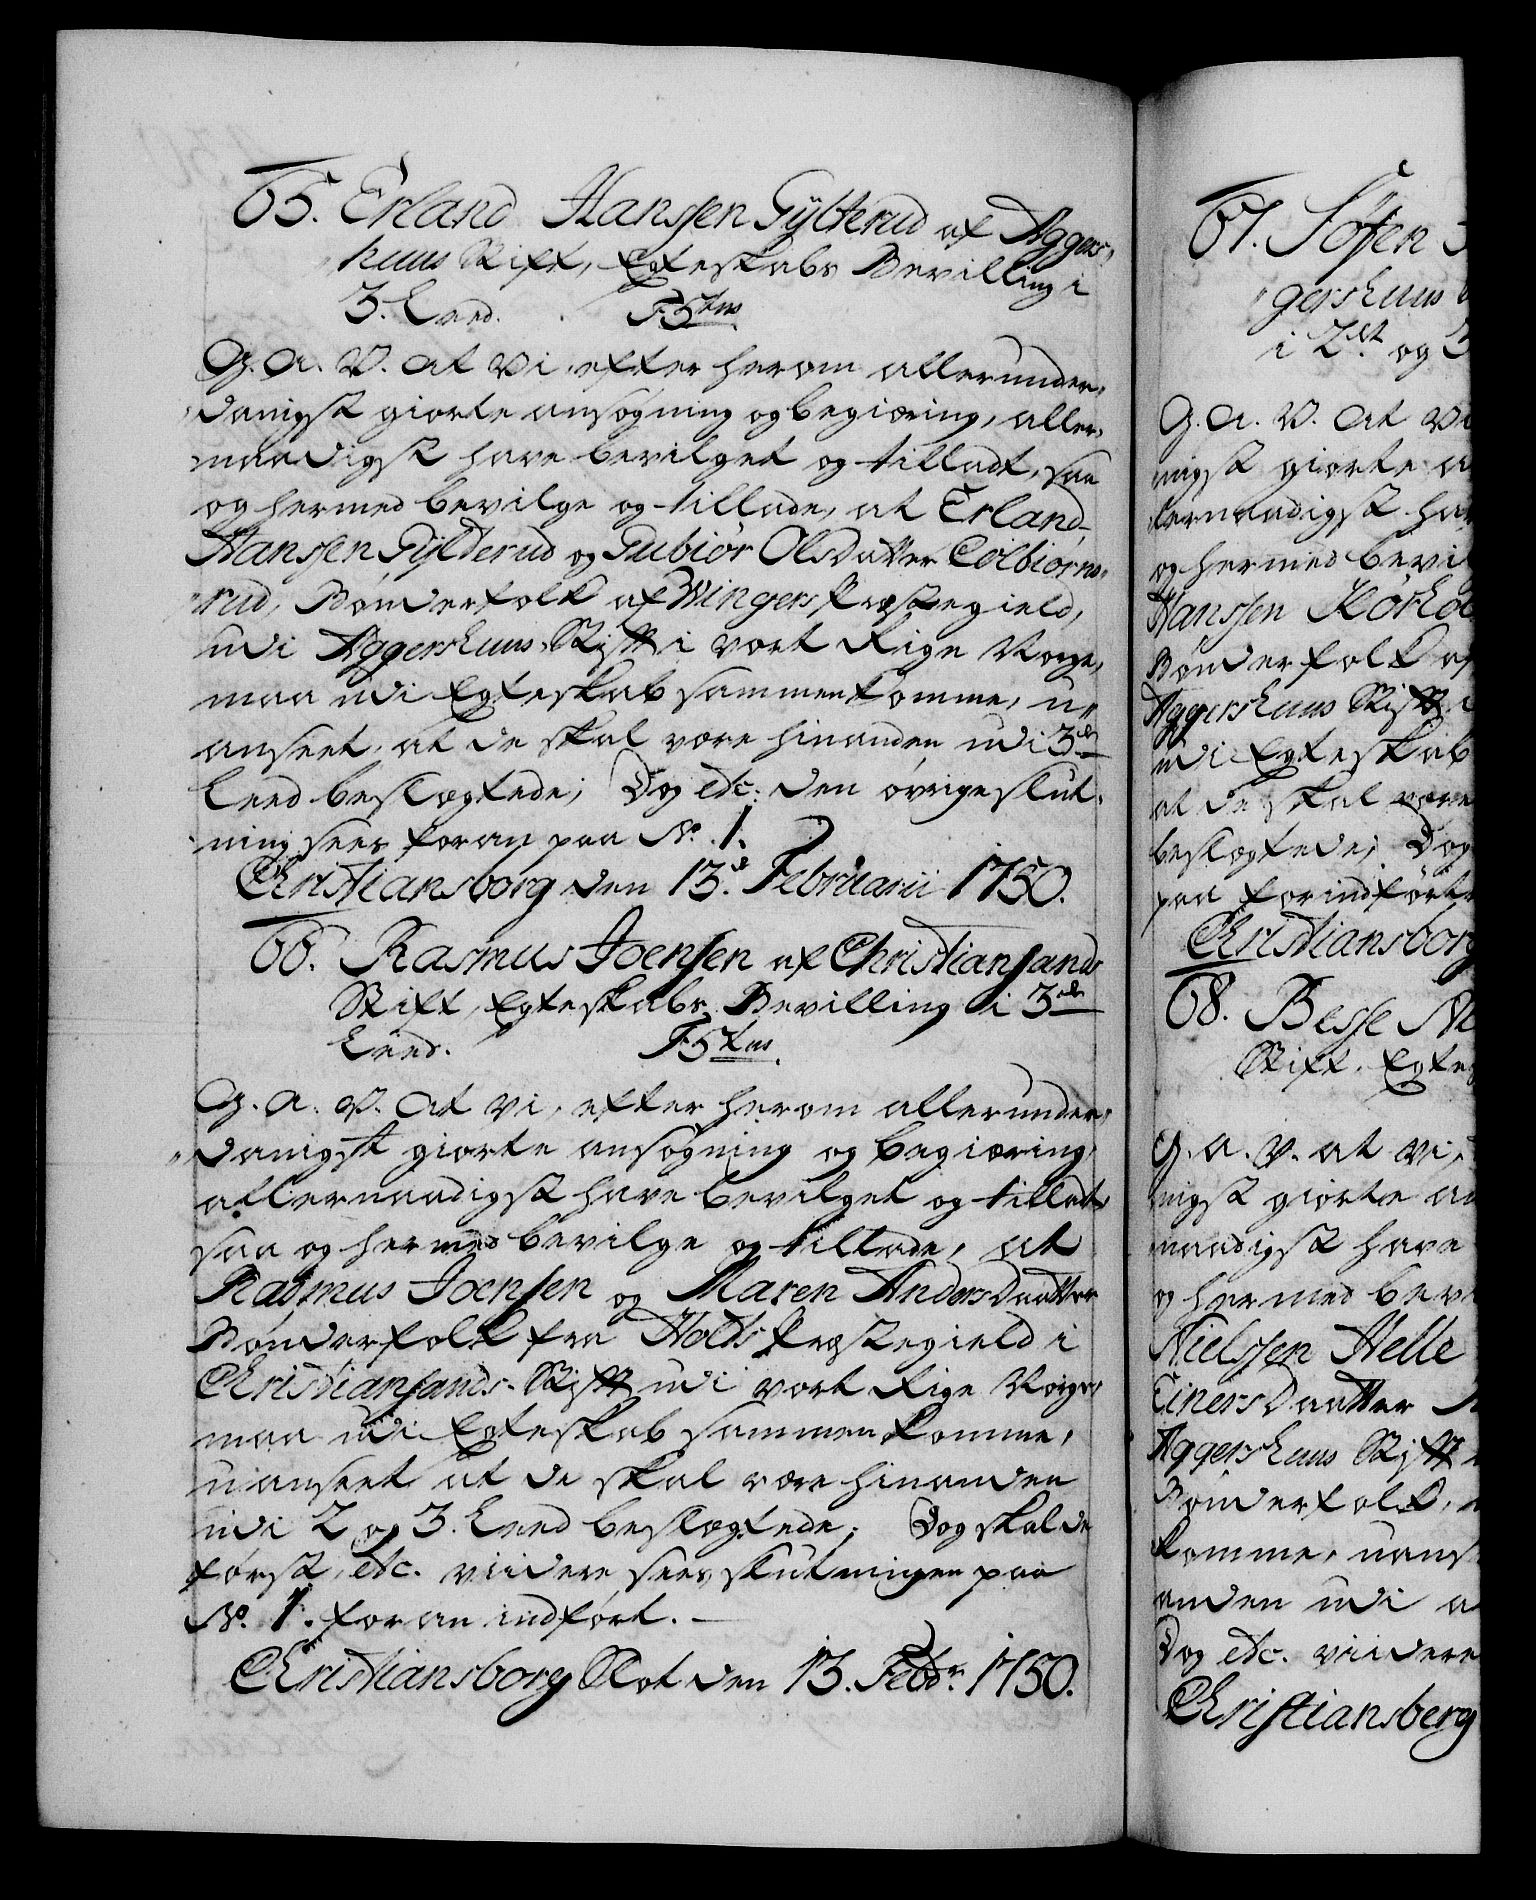 65. Erland Hanssen Gylterud af Agger,,
huus Stift, Egteskabs Bevilling i
3. Leed.
G. A. V. At Vi, efter herom allerunder,,
danigst giorte ansøgning og begiæring, aller,,
naadigst have bevilget og tilladt, saa
og hermed bevilge og tillade, at Erland
Hanssen Gylderud og Gubiør Olsdatter Colbiørns,,
rud, Bønderfolk af Wingers Præstegield,
udi Aggershuus Stifft i vort Rige Norge,
maa udi Egteskab sammenkomme, u,,
anseet, at de skal være hinanden udi 3de
Leed beslægtede; Dog etc: den øvrige slut,,
ning sees foran paa No. 1.
Christiansborg den 13de Februarii 1750.
66. Rasmus Joensen af Christiansands
Stift, Egteskabs Bevilling i 3de
Leed.
G. A. V. At Vi, efter herom allerunder,,
danigst giorte ansøgning og begiæring,
allernaadigst have bevilget og tilladt,
saa og hermed bevilge og tillade, at
Rasmus Joensen og Maren Andersdaatter
Bønderfolk fra Holts Præstegield i
Christiansands Stifft udi vort Rige Norge,
maa udi Egteskab sammenkomme,
uanseet at de skal være hinanden
udi 2 og 3. Leed beslægtede; Dog skal de
først, etc. viidere sees slutningen paa
No. 1. foran indført.
Christiansborg Slot den 13. Febr. 1750.
67. Søfen
gershuus
i 2det og 3
G. A. V. At Vi
nigst giorte
lernaadigst
og hermed
Hanssen
Bønderfolk
Aggershuus Stifft
udi Egteskab
at de skal være
beslægtede; Dog
paa forindført
Christiansborg
68. Besse
Stift, Egtes
G. A. V. at Vi,
nigst giorte
naadigst have
og hermed
Nielssen Helle
Einersdaatter
Aggershuus Stifft
Bønderfolk,
komme, uans
anden udi
Dog etc. viidere
Christiansberg